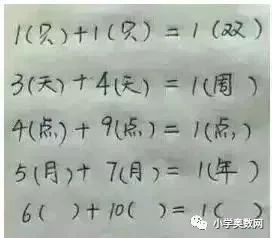 1(只)+1(只)=1(双)
3(天)+4(天)=1(周)
4(点)+9(点)=1(点)
5(月)+7(月)=1(年)
6( )+10( )=1( )
小学奥数网